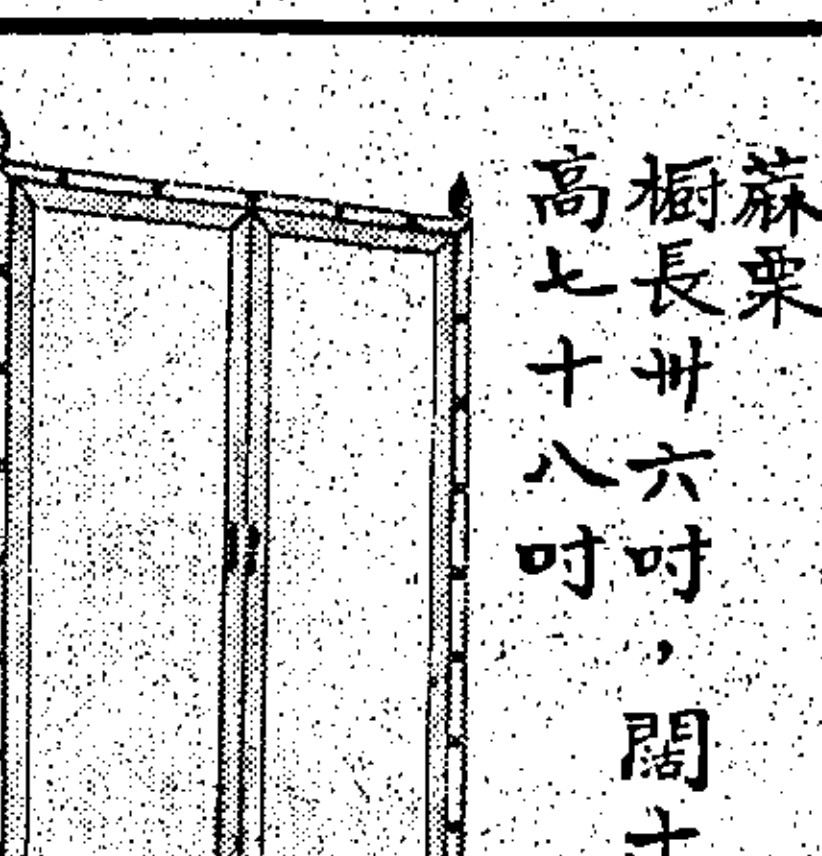 蔴栗
櫉長卅六吋，闊十
高七十八吋